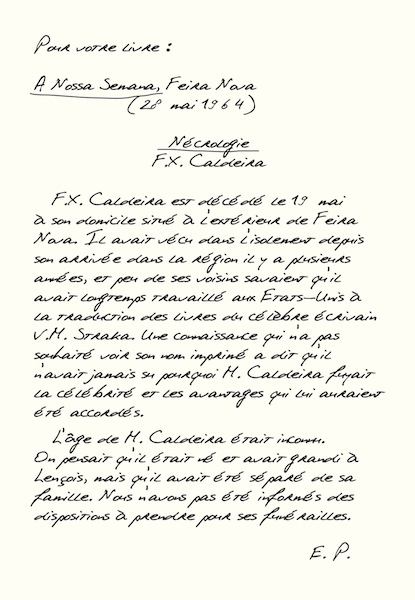 Pour votre livre :
A Nossa Semana, Feira Nova
(28 mai 1964)
Nécrologie
F.X. Caldeira
F.X. Caldeira est décédé le 19 mai
à son domicile situé à l'extérieur de Feira
Nova. Il avait vécu dans l'isolement depuis
son arrivée dans la région il y a plusieurs
années, et peu de ses voisins savaient qu'il
avait longtemps travaillé aux Etats-Unis à
la traduction des livres du célèbre écrivain
V.M. Straka. Une connaissance qui n'a pas
souhaité voir son nom imprimé a dit qu'il
n'avait jamais su pourquoi M. Caldeira fuyait
la célébrité et les avantages qui lui auraient
été accordés.
L'âge de M. Caldeira était inconnu.
On pensait qu'il était né et avait grandi à
Lençois, mais qu'il avait été séparé de sa
famille. Nous n'avons pas été informés des
dispositions à prendre pour ses funérailles.
E. P.